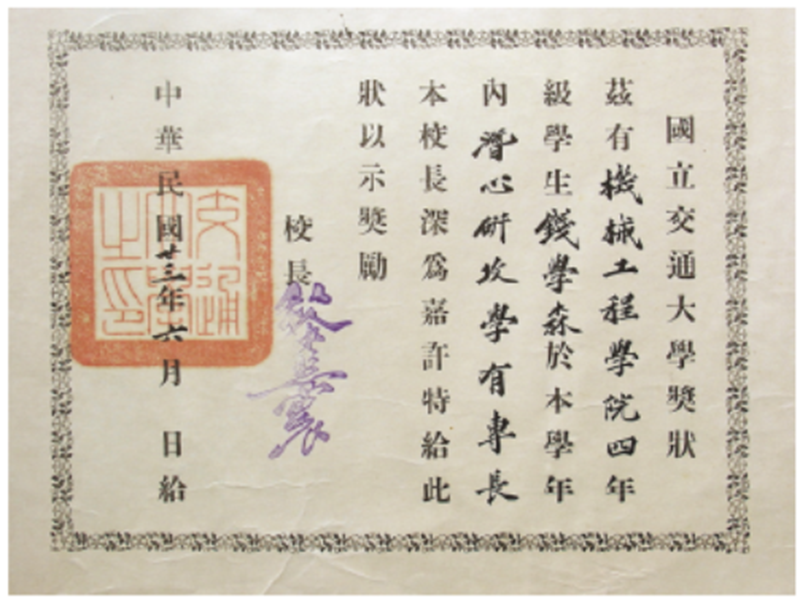 國立交通大學獎狀
茲有機械工程學院四年
級學生錢學森於本學年
內潛心研攻學有專長
本校長深為嘉許特給此
狀以示獎勵
校長 黎照寰
中華民國廿三年六月 日給
交通大學之印